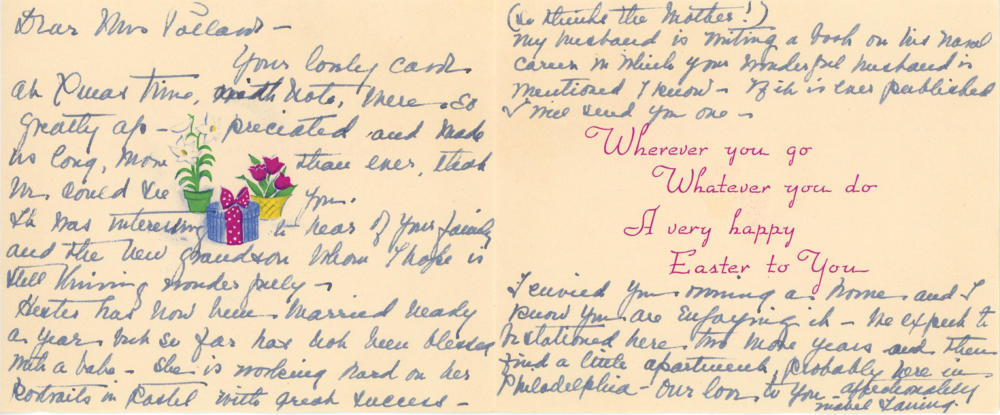 Dear Mrs Pollard -
Your lovely card
at Xmas time, with note, were so
greatly ap- preciated and made
us long, more than ever, that
we could see you.
It was interesting to hear of your family
and the new grandson whom I hope is
still thriving wonderfully -
Hester has now been married nearly
a year but so far has not been blessed
with a babe - She is working hard on her
portraits in Pastel with great success -
(so thinks the Mother!)
My husband is writing a book on his naval
career in which your wonderful husband is
mentioned I know - If it is ever published
I will send you one -
Wherever you go
Whatever you do
A very happy
Easter to You
I envied you owning a home and I
know you are enjoying it - We expect to
be stationed here two more years and then
find a little apartment, probably here in
Philadelphia - Our love to you - affectionately
Mabel Laning